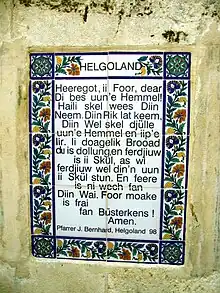 HELGOLAND
Heeregot, ii Foor, dear
Di bes uun'e Hemmel!
Haili skel wees Diin
Neem. Diin Rik lat keem.
Diin Wel skel djülle
uun'e Hemmel en iip'e
lir. Ii doagelk Brooad
du is dollung en ferdjiuw
is ii Skül, as wi
ferdjiuw wel din'n uun
ii Skül stun. En feere
is ni wech fan
Diin Wai. Foor moake
is frai
fan Büsterkens!
Amen.
Pfarrer J. Bernhard, Helgoland 98